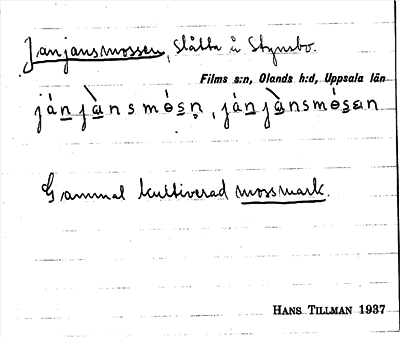 Janjansmossen, slåtta å Stynsbo.
Films s:n, Olands h:d, Uppsala län
jánjànsmósn̥, jánjànsmósɛn
Gammal kultiverad mossmark.
HANS TILLMAN 1937